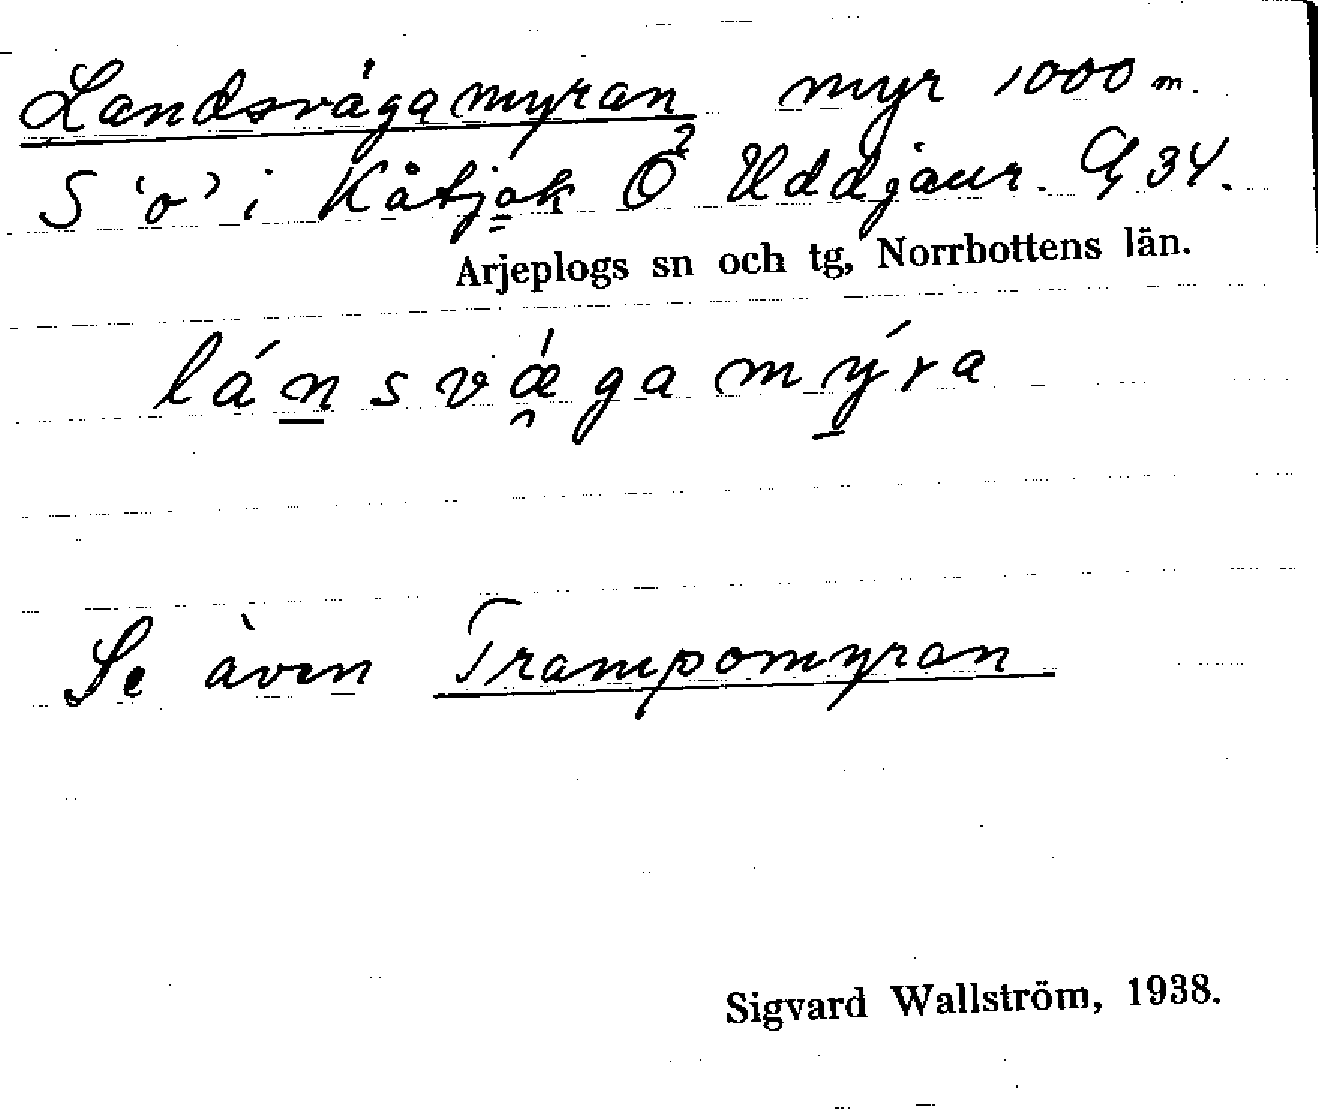 Landsvägamyran myr 1000 m.
S 'o' i Kåtjok Ö² Uddjaur. G 34.
Arjeplogs sn och tg, Norrbottens län.
lánsvǽgamýra
Se även Trampomyran
Sigvard Wallström, 1938.